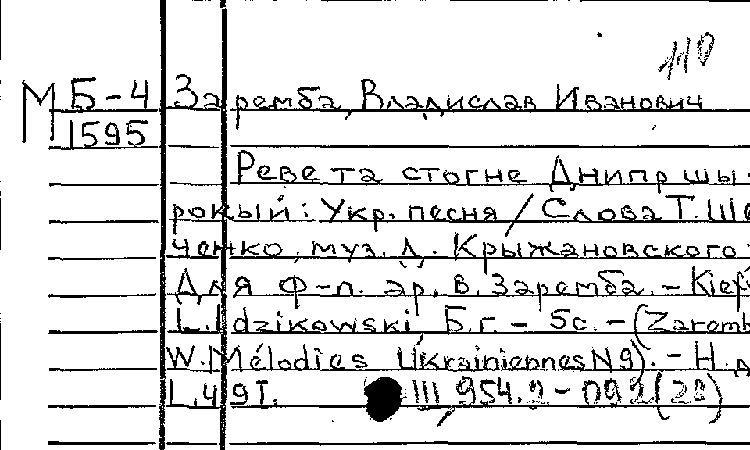 110
М Б-4 Заремба, Владислав Иванович
1595
Реве та стогне Днипр шы-
рокый: Укр. песня / Слова Т. Ше
ченко, муз. Д. Крыжановского;
Для ф-п. ар. В. Заремба. - Kief
L. Idzikowski, Б.г. - 5с. - (Zaremb
W. Mélodies Ukrainiennes N9). - Н.д
L.491.